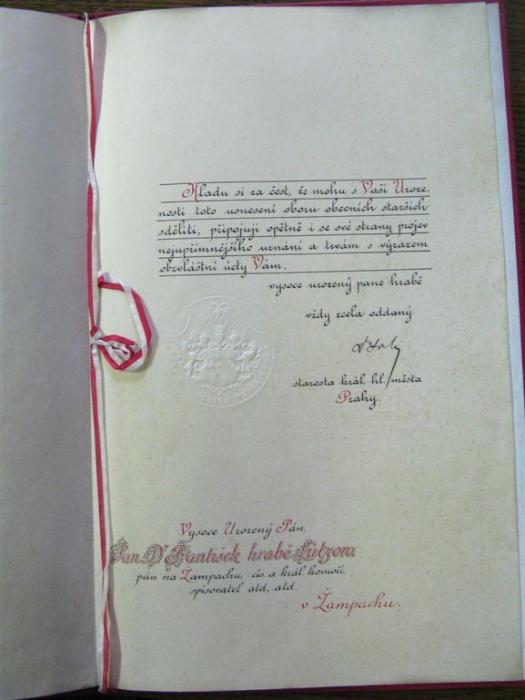 Kladu si za čest, že mohu s Vaší Uroze-
ností toto usnesení sboru obecních starších
sděliti, připojuji opětně i se své strany projev
nejupřímnějšího uznání a trvám s výrazem
obzvláštní úcty Vám,
vysoce urozený pane hrabě
vždy zcela oddaný
starosta král. hl. města
Prahy.
Vysoce Urozený Pán,
Pan Dr František hrabě Lützow
pán na Žampachu, cís. a král. komoří,
spisovatel atd, atd.
v Žampachu.